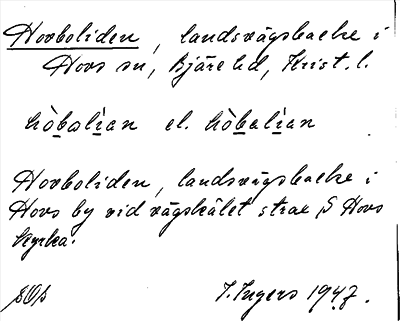 Hovboliden, landsvägsbacke i
Hovs sn, Bjäre hd, Krist. l.
hòbalian el. hòbalian
Hovboliden, landsvägsbacke i
Hovs by vid vägskälet strax S Hovs
kyrka.
I. Ingers 1947.